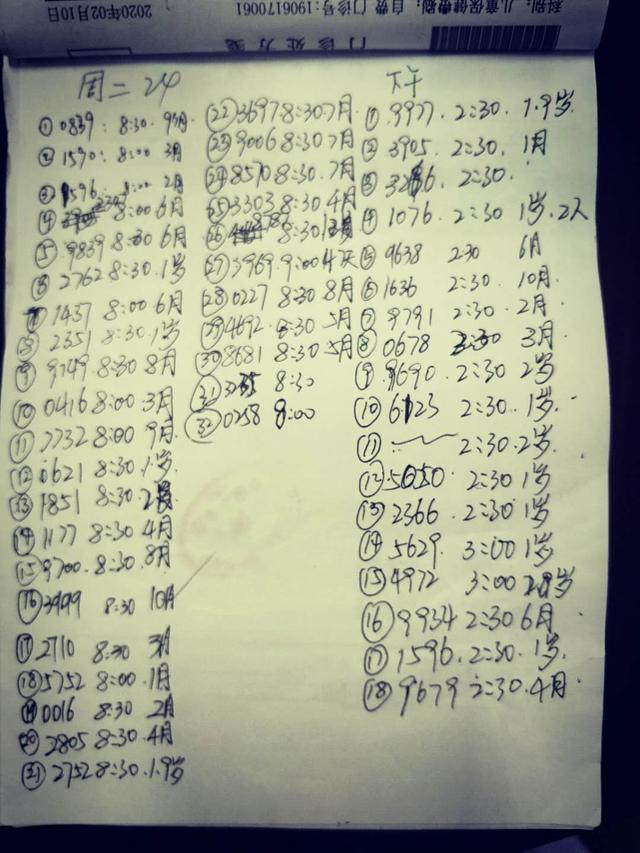 科别: 儿童保健费别: 自费 门诊号: 1906170061
2020年02月10日
门诊处方笺
周二 24
① 0839: 8:30. 9月
② 1590: 8:00 3月
③ 1596: 8:00 2月
④ 8:00 6月
⑤ 9839 8:30 6月
⑥ 2762 8:30. 1岁
⑦ 1437 8:00 6月
⑧ 2351 8:30. 1岁
⑨ 9749 8:30 8月
⑩ 0416 8:00. 3月
⑪ 7732 8:00 9月
⑫ 0621 8:30. 1岁.
⑬ 1851 8:30.
⑭ 1177 8:30 4月
⑮ 9700. 8:30. 8月
⑯ 3999 8:30 10月
⑰ 2710 8:30 3月
⑱ 5752 8:00. 1月
⑲ 0016 8:30 2月
⑳ 2805 8:30. 4月
㉑ 2752 8:30. 1.9岁
㉒ 3697 8:30 7月
㉓ 9006 8:30 7月
㉔ 8570 8:30. 7月
㉕ 3303 8:30 4月
㉖ 8:30
㉗ 3969. 9:00 4天
㉘ 0227 8:30 8月
㉙ 4692 8:30 5月
㉚ 8681 8:30 5月
㉛ 8:30
㉜ 0258 8:00
下午
① 9977. 2:30. 1.9岁
② 3905. 2:30. 1月
③ 2:30.
④ 1076. 2:30 1岁. 2人
⑤ 9638 2:30 6月
⑥ 1636 2:30. 10月.
⑦ 9791 2:30. 2月.
⑧ 0678 2:30 3月.
⑨ 9690. 2:30 2岁
⑩ 6123 2:30. 1岁.
⑪ 2:30. 2岁.
⑫ 5050. 2:30 1岁
⑬ 2366. 2:30 1岁
⑭ 5629. 3:00 1岁
⑮ 4972 3:00
⑯ 9934 2:30 6月
⑰ 1596. 2:30. 1岁.
⑱ 9679 2:30. 4月.